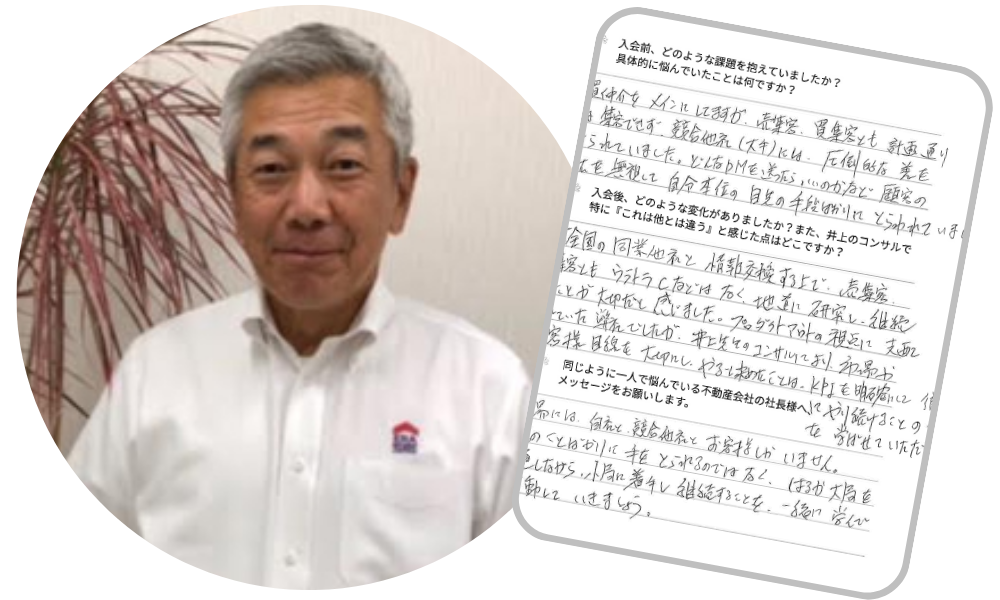 入会前、どのような課題を抱えていましたか？
具体的に悩んでいたことは何ですか？
仲介をメインにしてますが、売集客、買集客とも計画通り
集客できず 競合他社(大手)には、圧倒的な差を
られていました。どんなDMを送ったらいいのかなど 顧客の
を無視して 自分本位の目先の手段ばかりに とらわれていま
入会後、どのような変化がありましたか？また、井上のコンサルで
特に『これは他とは違う』と感じた点はどこですか？
全国の同業他社と 情報交換する上で、売集客、
客とも ウラトラCなどはなく、地道に研究し、継続
ことが大切だと感じました。プロダクトアウトの視点に
ていた でしたが、井上先生のコンサルにより、
客様目線を大切にし、やると決めたことは、KPIを明確にして
に やり続けることの
を 学ばせていただ
同じように一人で悩んでいる不動産会社の社長様へ
メッセージをお願いします。
には、自社と、競合他社と お客様しか いません。
のことばかりに 手を とられるのではなく、はるか大局を
しながら、小局に着手し 継続することを、一緒に 学んで
動して いきましょう。